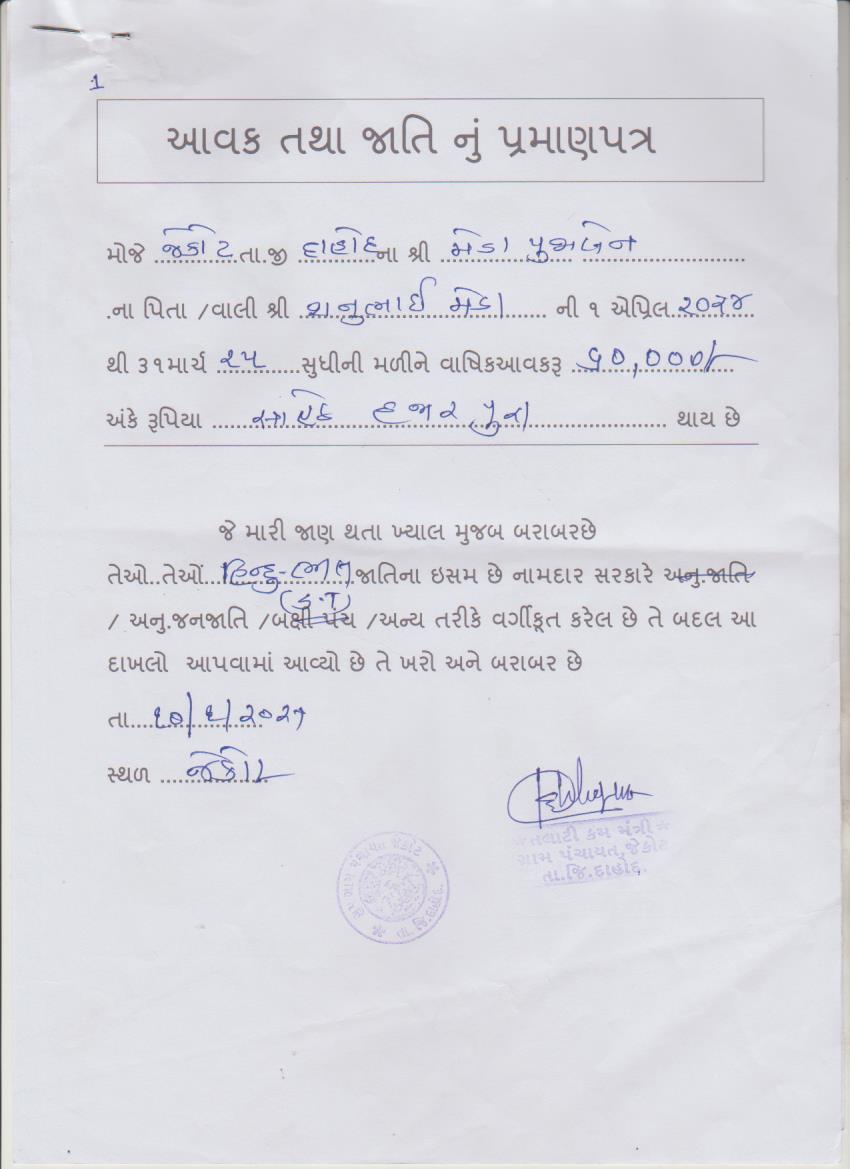 1
આવક તથા જાતિ નું પ્રમાણપત્ર
મોજે જેકોટ તા.જી દાહોદ ના શ્રી મેડા પુજાબેન
.ના પિતા /વાલી શ્રી શનુભાઈ મેડા ની ૧ એપ્રિલ ૨૦૨૪
થી ૩૧માર્ચ ૨૫ સુધીની મળીને વાષિકઆવકરૂ ૬૦,૦૦૦/-
અંકે રૂપિયા સાઈઠ હજાર પુરા થાય છે
જે મારી જાણ થતા ખ્યાલ મુજબ બરાબરછે
તેઓ..તેઓં હિન્દુ-ભીલ જાતિના ઇસમ છે નામદાર સરકારે અનુ.જાતિ
/ અનુ.જનજાતિ /બક્ષી પંચ /અન્ય તરીકે વર્ગીકૃત કરેલ છે તે બદલ આ
દાખલો આપવામાં આવ્યો છે તે ખરો અને બરાબર છે
તા. ૧૦/૬/૨૦૨૫
સ્થળ જેકોટ
તલાટી કમ મંત્રી
ગ્રામ પંચાયત,જેકોટ
તા.જિ.દાહોદ.
ગ્રામ પંચાયત જેકોટ
તા. જિ.દાહોદ.